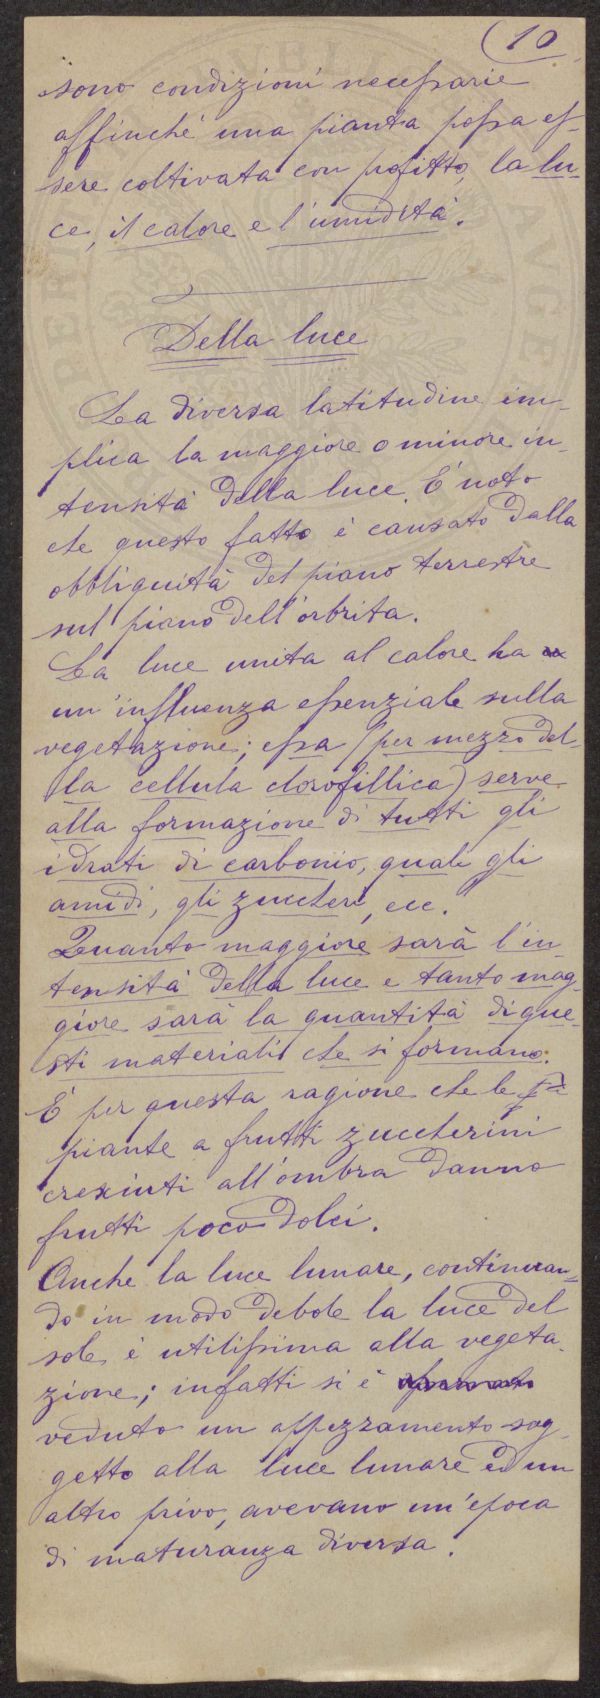 (10
sono condizioni necessarie
affinché una pianta possa es-
sere coltivata con profitto, la lu-
ce, il calore e l'umidità.
Della luce
La diversa latitudine im-
plica la maggiore o minore in-
tensità della luce. È noto
che questo fatto è causato dalla
obbliquità del piano terrestre
sul piano dell'orbita.
La luce unita al calore ha
un'influenza essenziale sulla
vegetazione; essa (per mezzo del-
la cellula clorofillica) serve
alla formazione di tutti gli
idrati di carbonio, quali gli
amidi, gli zuccheri, ecc.
Quanto maggiore sarà l'in-
tensità della luce e tanto mag-
giore sarà la quantità di que-
sti materiali che si formano.
È per questa ragione che le
piante a frutti zuccherini
cresciuti all'ombra danno
frutti poco dolci.
Anche la luce lunare, continuan-
do in modo debole la luce del
sole, è utilissima alla vegeta-
zione; infatti si è
veduto un appezzamento sog-
getto alla luce lunare ed un
altro privo, avevano un'epoca
di maturanza diversa.